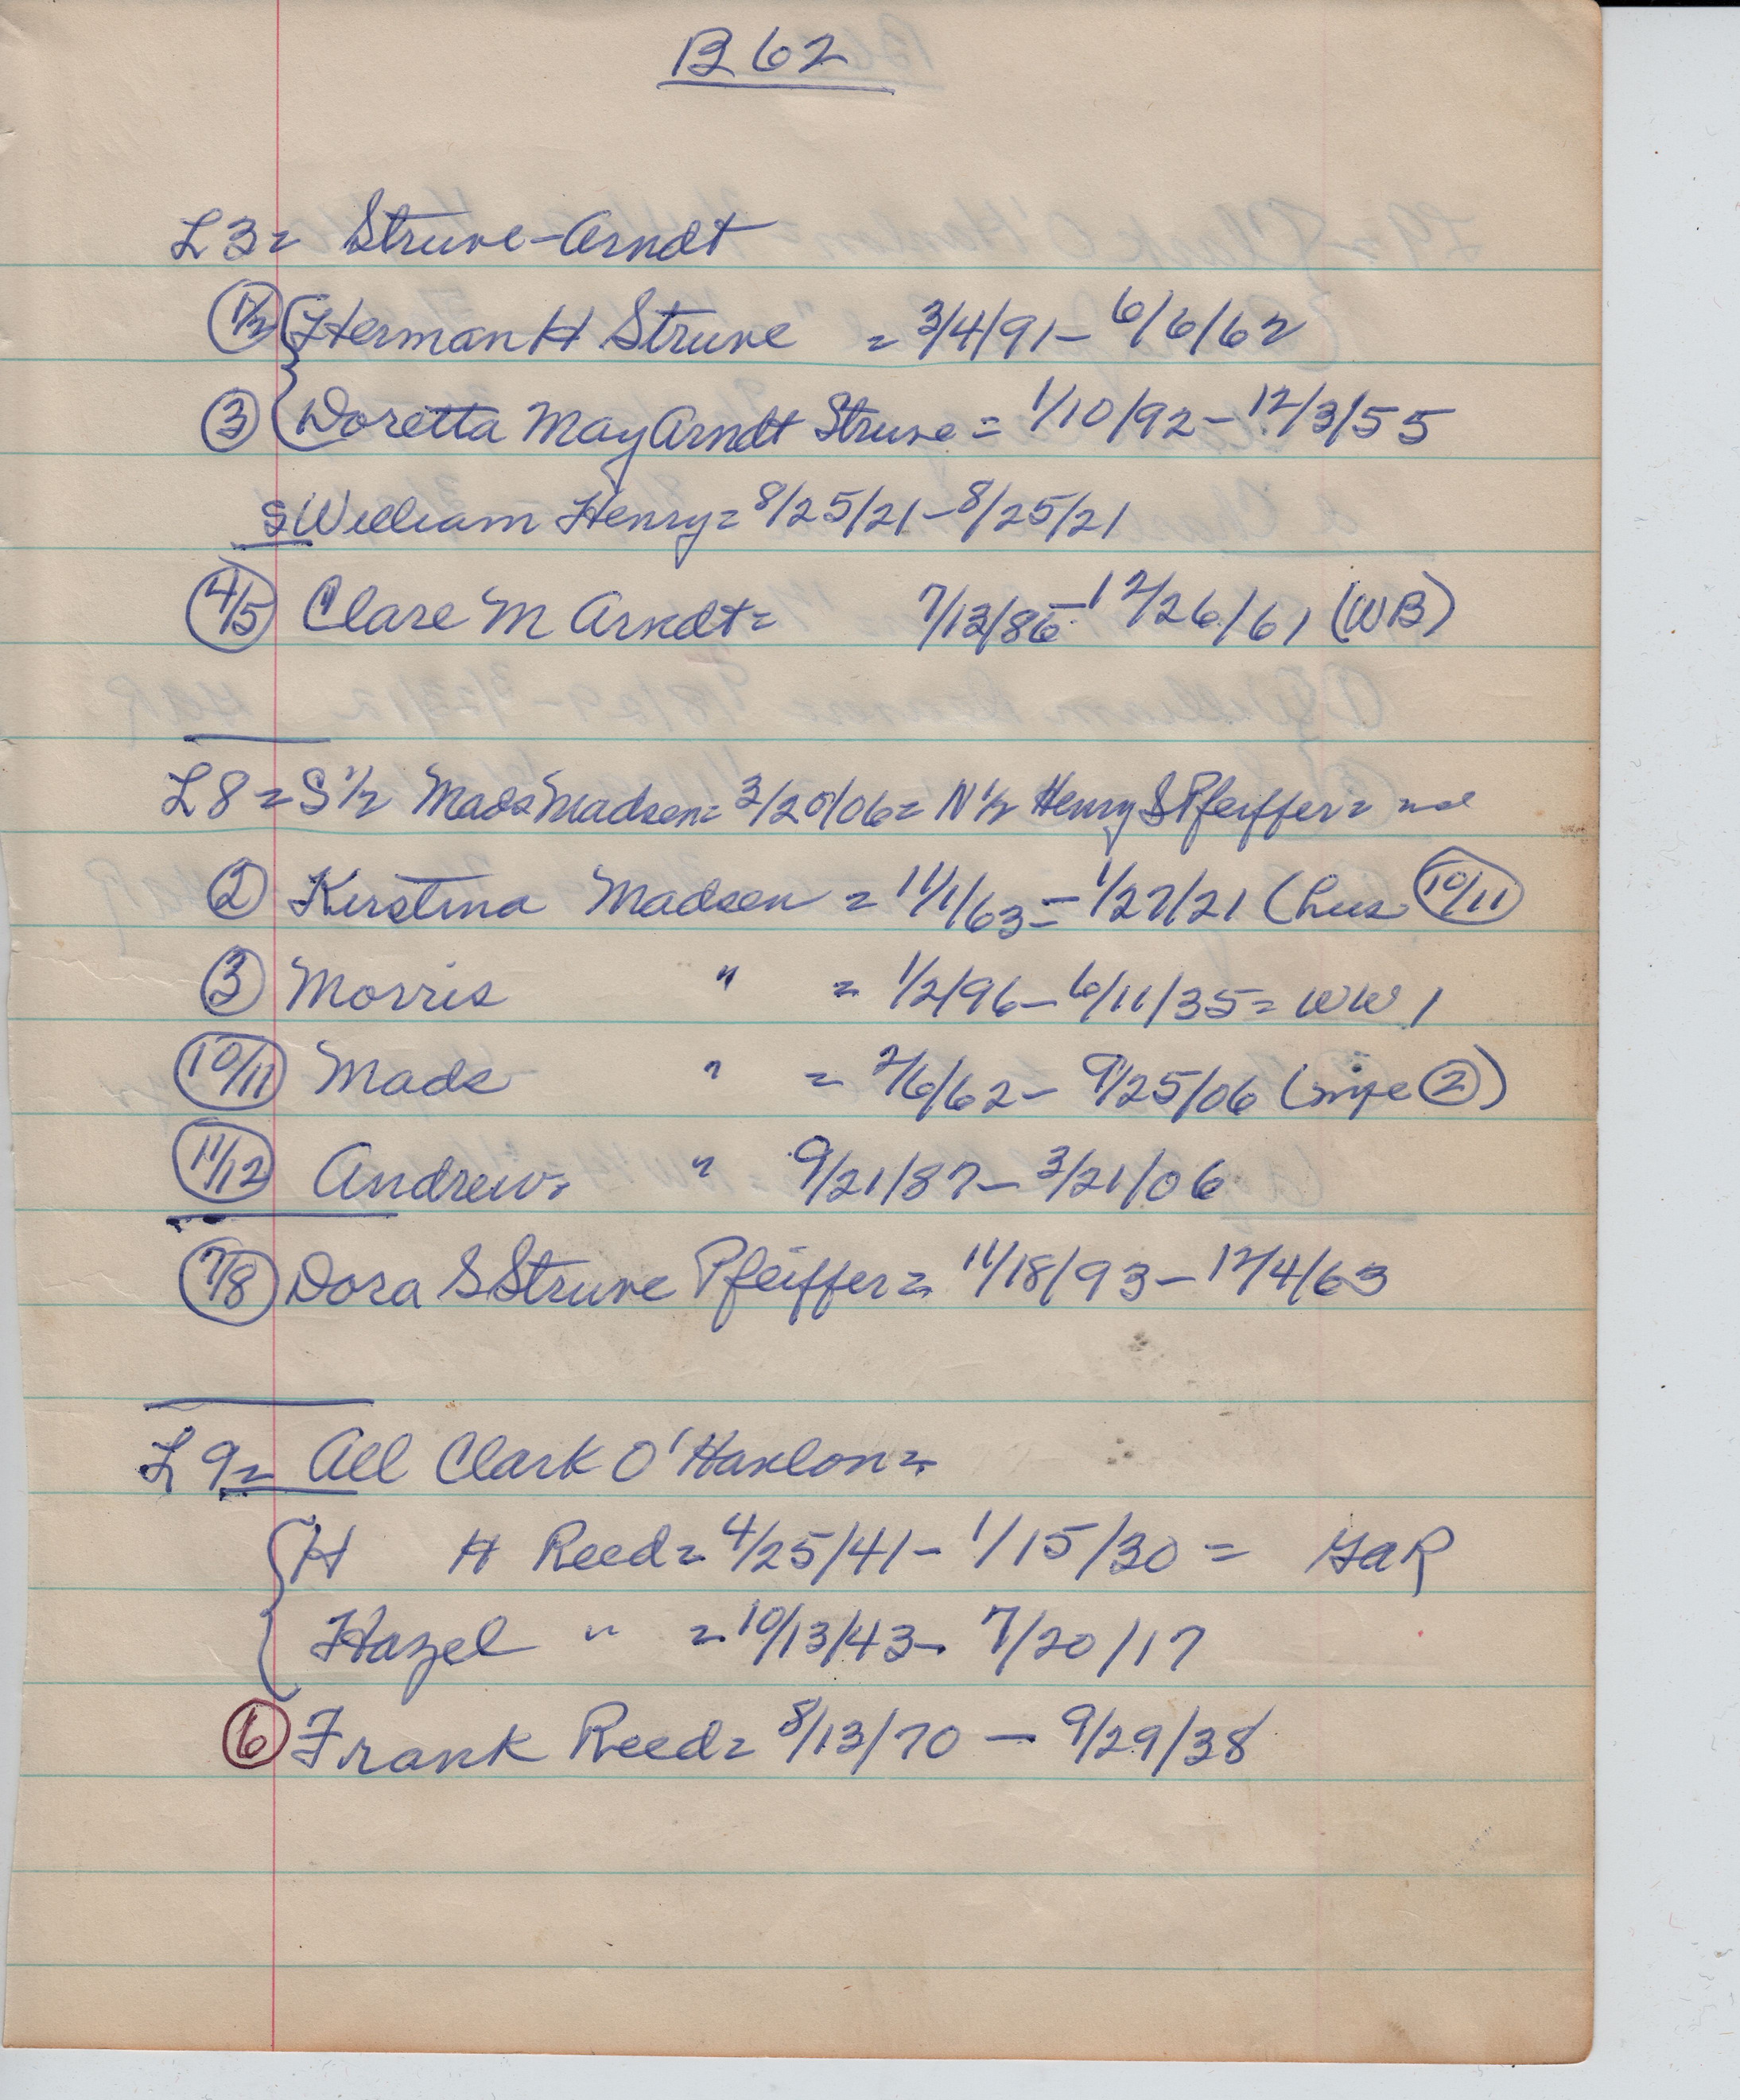 B 62
L3= Struve-Arndt
1/2 Herman H Struve = 3/4/91- 6/6/62
3 Doretta May Arndt Struve = 1/10/92- 12/3/55
S William Henry= 8/25/21-8/25/21
4/5 Clare M Arndt= 7/13/86-12/26/61 (WB)
L8= S 1/2 Mads Madsen= 3/20/06= N 1/2 Henry S Pfeiffer=
2 Kirstina Madsen = 11/1/63= 1/27/21 (hus 10/11
3 Morris " = 1/2/96- 6/11/35= WW 1
10/11 Mads " = 2/6/62- 9/25/06 (wife 2)
11/12 Andrew= " 9/21/87- 3/21/06
7/8 Dora S Struve Pfeiffer= 11/18/93- 12/4/63
L 9= All Clark O'Hanlon=
H H Reed= 4/25/41- 1/15/30 = GaR
Hazel " = 10/13/43- 7/20/17
6 Frank Reed= 8/13/70 - 9/29/38